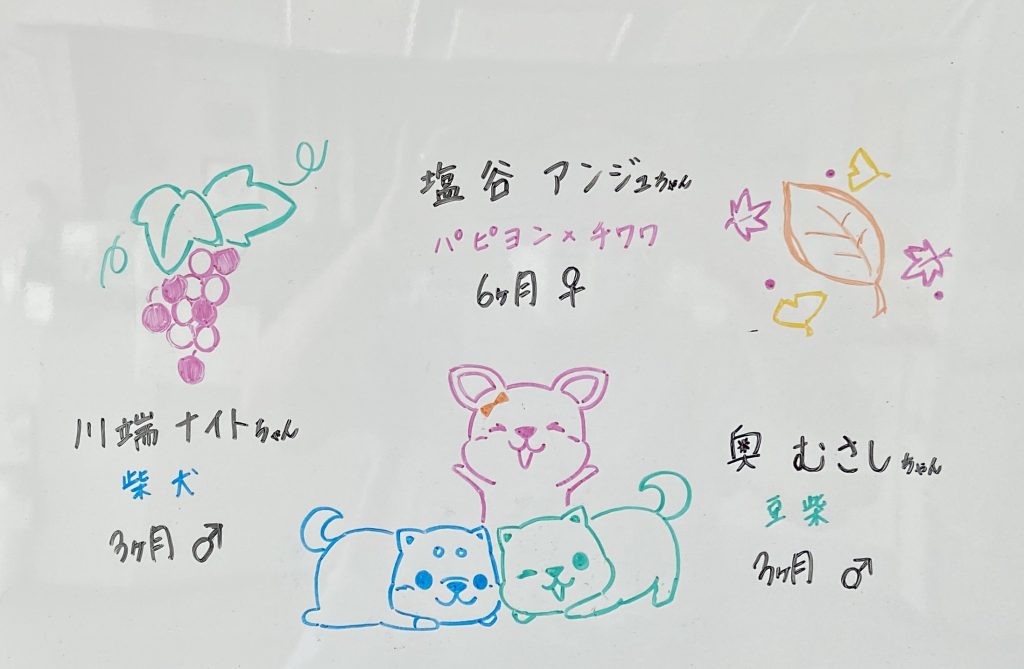 塩谷 アンジュちゃん
パピヨン×チワワ
6ヶ月 ♀
川端 ナイトちゃん
柴犬
3ヶ月 ♂
奥 むさしちゃん
豆柴
3ヶ月 ♂